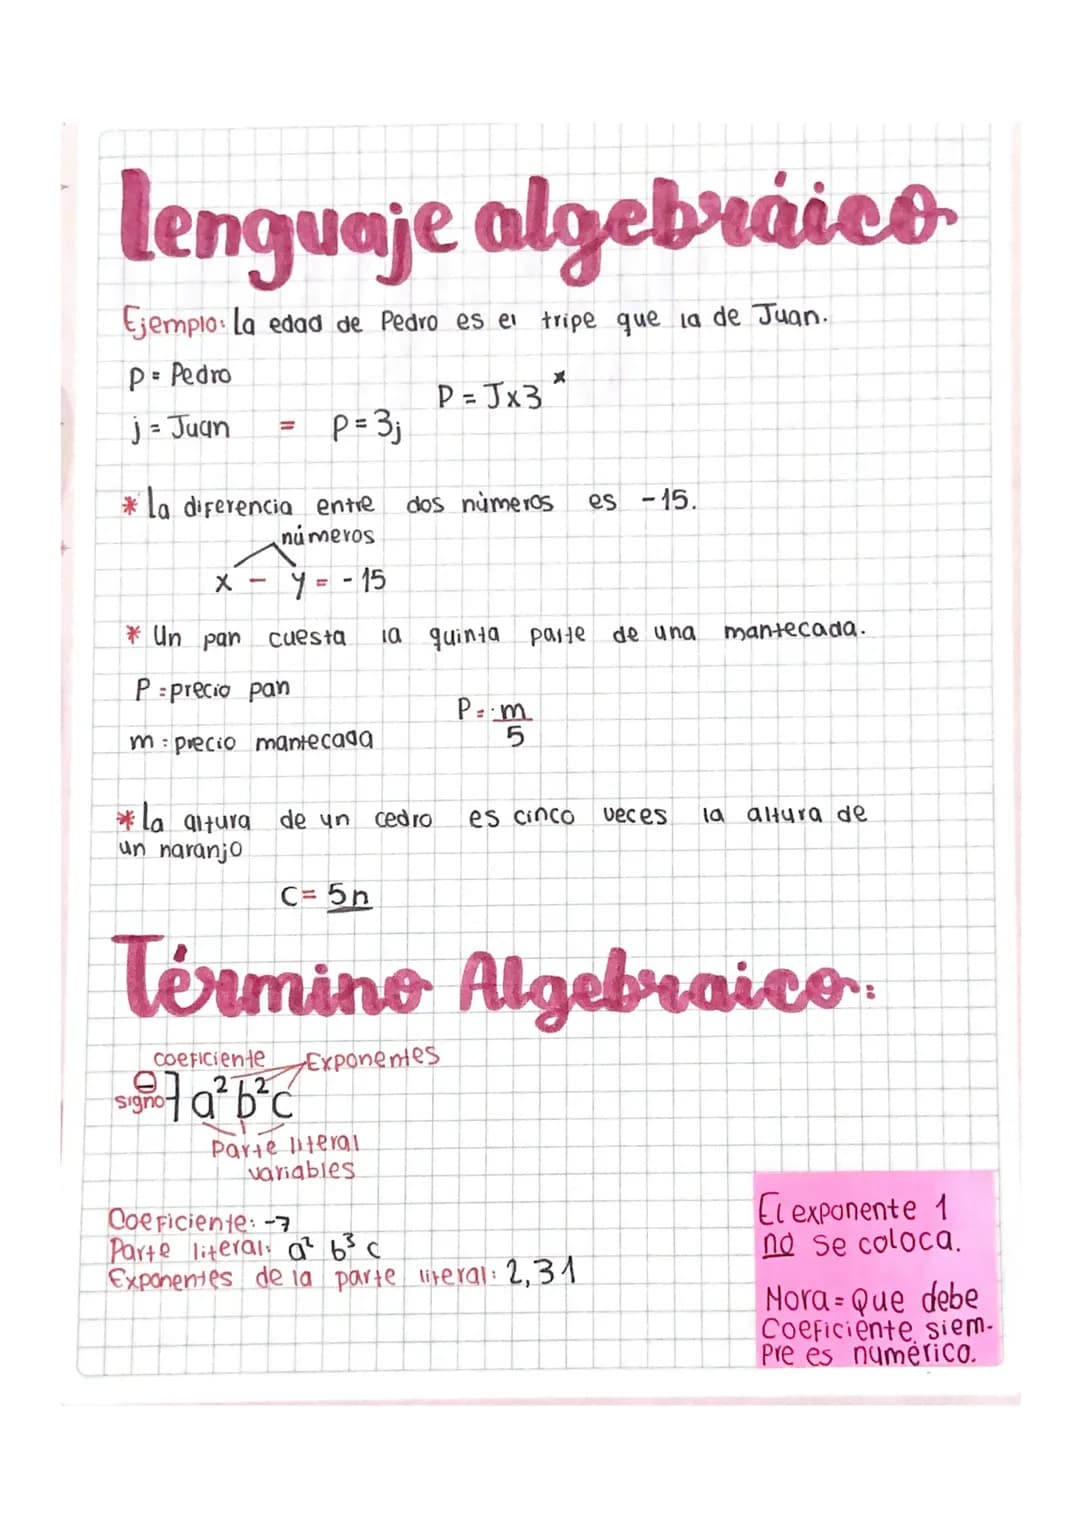 lenguaje algebráico
Ejemplo: La edad de Pedro es el tripe que la de Juan.
p = Pedro
P = Jx3 *
j = Juan = p = 3j
* La diferencia entre dos números es -15.
números
x - y = - 15
* Un pan cuesta la quinta parte de una mantecada.
P = precio pan
P = m
5
m = precio mantecada
* La altura de un cedro es cinco veces la altura de
un naranjo
C = 5n
Término Algebraico:
coeficiente Exponentes
signo - 7 a² b² c
Parte literal
variables
Coeficiente: -7
Parte literal: a² b³ c
Exponentes de la parte literal: 2,31
El exponente 1
no se coloca.
Nora = Que debe
Coeficiente siem-
pre es numérico.